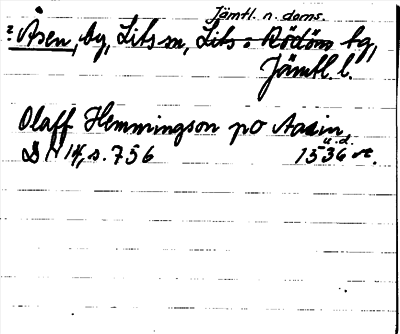 Jämtl. n. doms.
? Åsen, by, Lits sn, Lits o Rödöns tg,
Jämtl. l.
Olaff Hemmingson po Aasin
u.d.
DN 14, s. 756 1536 or.